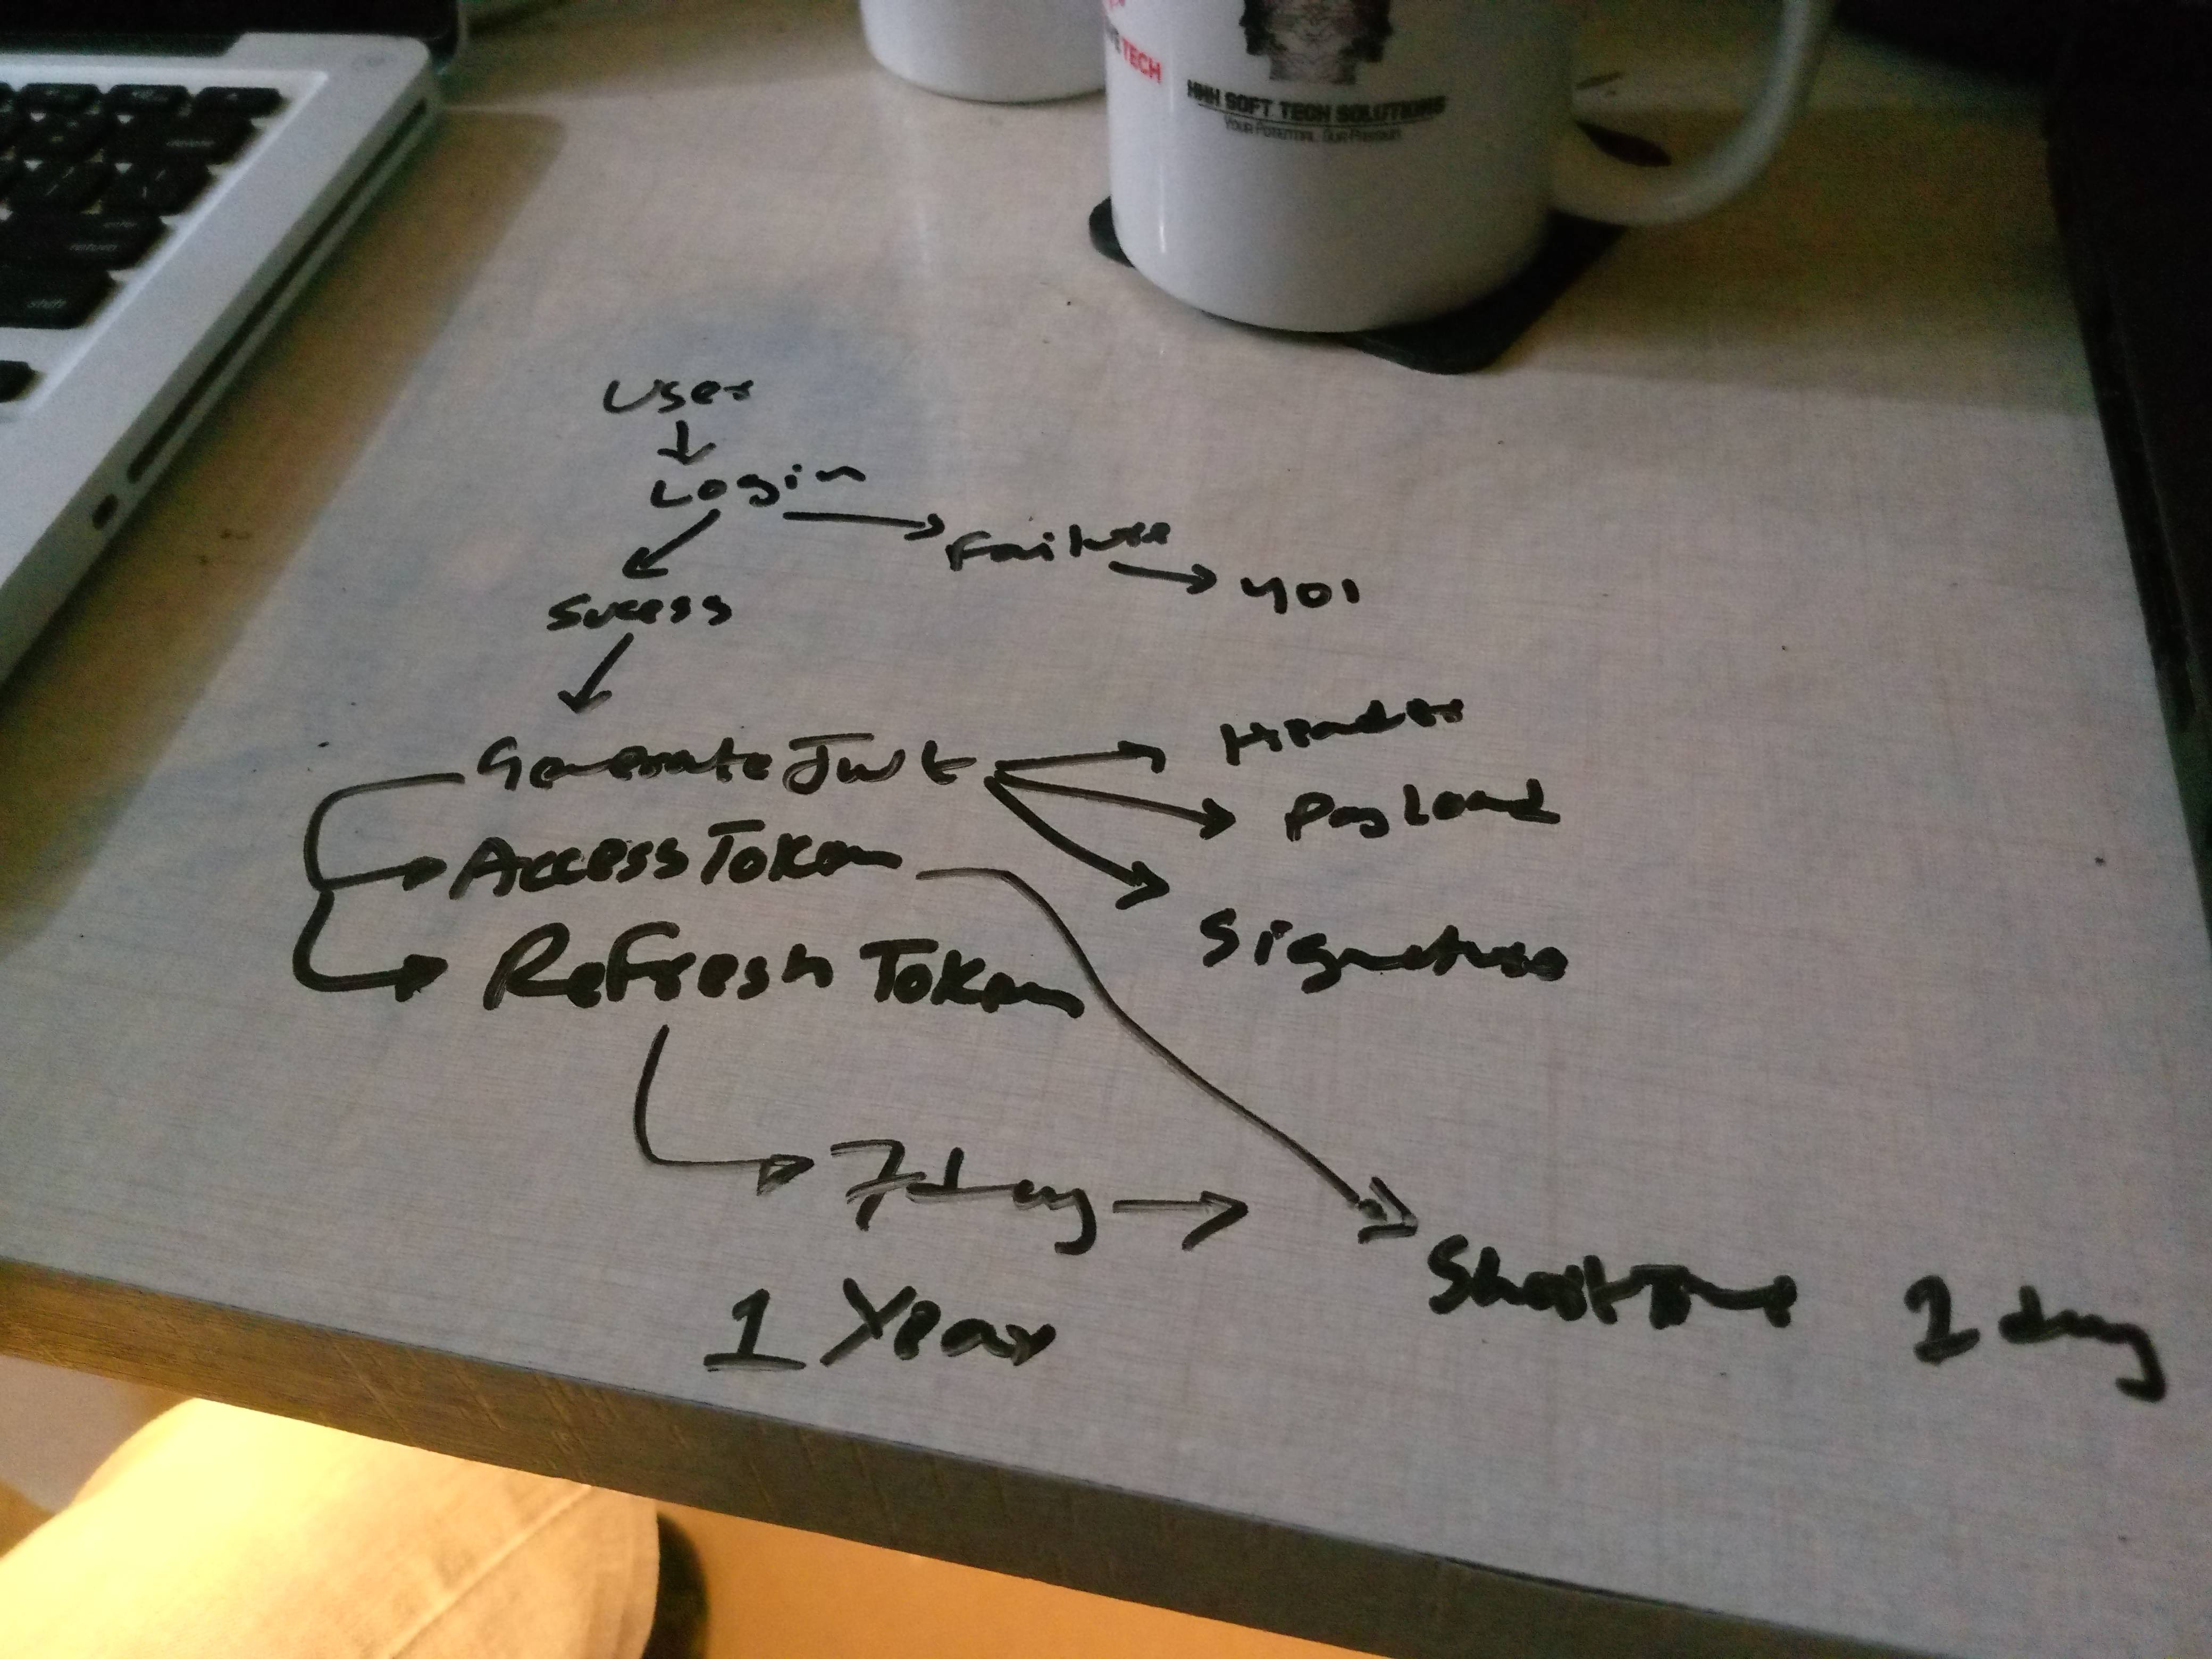 TECH
HNH SOFT TECH SOLUTIONS
YOUR POTENTIAL, OUR PASSION
return
shift
User
Login
Failure
401
Sucess
Generate Jwt
Header
Payload
Access Token
Signature
Refresh Token
7 day
Short Time 1 day
1 Year